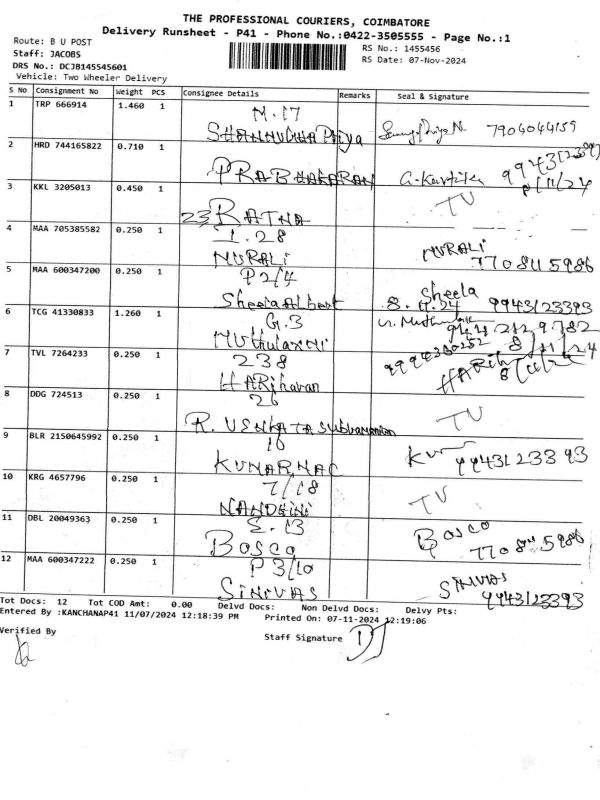 THE PROFESSIONAL COURIERS, COIMBATORE
Delivery Runsheet - P41 - Phone No.:0422-3505555 - Page No.:1
Route: B U POST
RS No.: 1455456
Staff: JACOBS
RS Date: 07-Nov-2024
DRS No.: DCJB145545601
Vehicle: Two Wheeler Delivery
S No Consignment No Weight PCS Consignee Details Remarks Seal & Signature
1 TRP 666914 1.460 1 M.17
SHANNUGHA Priya 7904044159
2 HRD 744165822 0.710 1
PRABHAKARAN
3 KKL 3205013 0.450 1 TV
23, RATNA
4 MAA 705385582 0.250 1 I.28
MURALi MURALi 7708415986
5 MAA 600347200 0.250 1 P2/4
Sheela Albert Sheela 8.11.24 9943123393
6 TCG 41330833 1.260 1 G.3
Muthulaxmi
7 TVL 7264233 0.250 1 238
HARiharan 8/11/24
8 DDG 724513 0.250 1 26
R. VENKATASubramanian TV
9 BLR 2150645992 0.250 1 16
KUMAR 9943123393
10 KRG 4657796 0.250 1 7/18
NANDHiNi TV
11 DBL 20049363 0.250 1 E.13
Bosco Bosco 7708415986
12 MAA 600347222 0.250 1 P3/10
SiNiVAS SiNiVAS 9943123393
Tot Docs: 12 Tot COD Amt: 0.00 Delvd Docs: Non Delvd Docs: Delvy Pts:
Entered By :KANCHANAP41 11/07/2024 12:18:39 PM Printed On: 07-11-2024 12:19:06
Verified By
Staff Signature